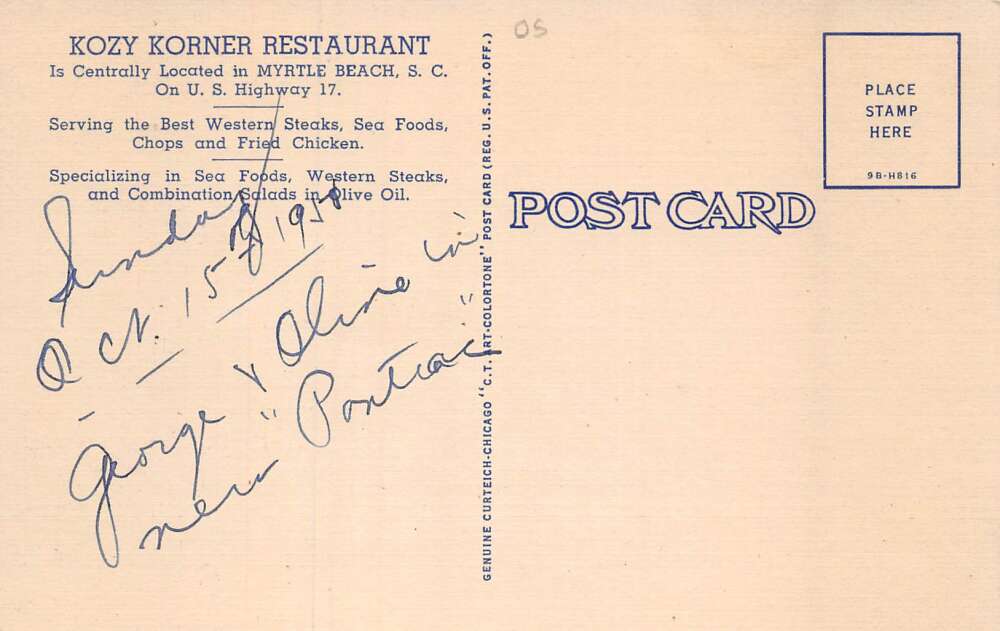 KOZY KORNER RESTAURANT
Is Centrally Located in MYRTLE BEACH, S. C.
On U. S. Highway 17.
Serving the Best Western Steaks, Sea Foods,
Chops and Fried Chicken.
Specializing in Sea Foods, Western Steaks,
and Combination Salads in Olive Oil.
Sunday
Oct. 15th 1950
George & Oline in
new "Pontiac"
GENUINE CURTEICH-CHICAGO "C.T. ART-COLORTONE" POST CARD (REG. U.S. PAT. OFF.)
OS
POST CARD
PLACE
STAMP
HERE
9B-H816